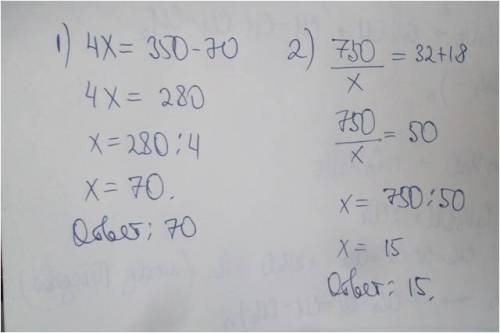 1) 4x = 350 - 70
4x = 280
x = 280 : 4
x = 70.
Ответ: 70
2) 750/x = 32+18
750/x = 50
x = 750 : 50
x = 15
Ответ: 15.